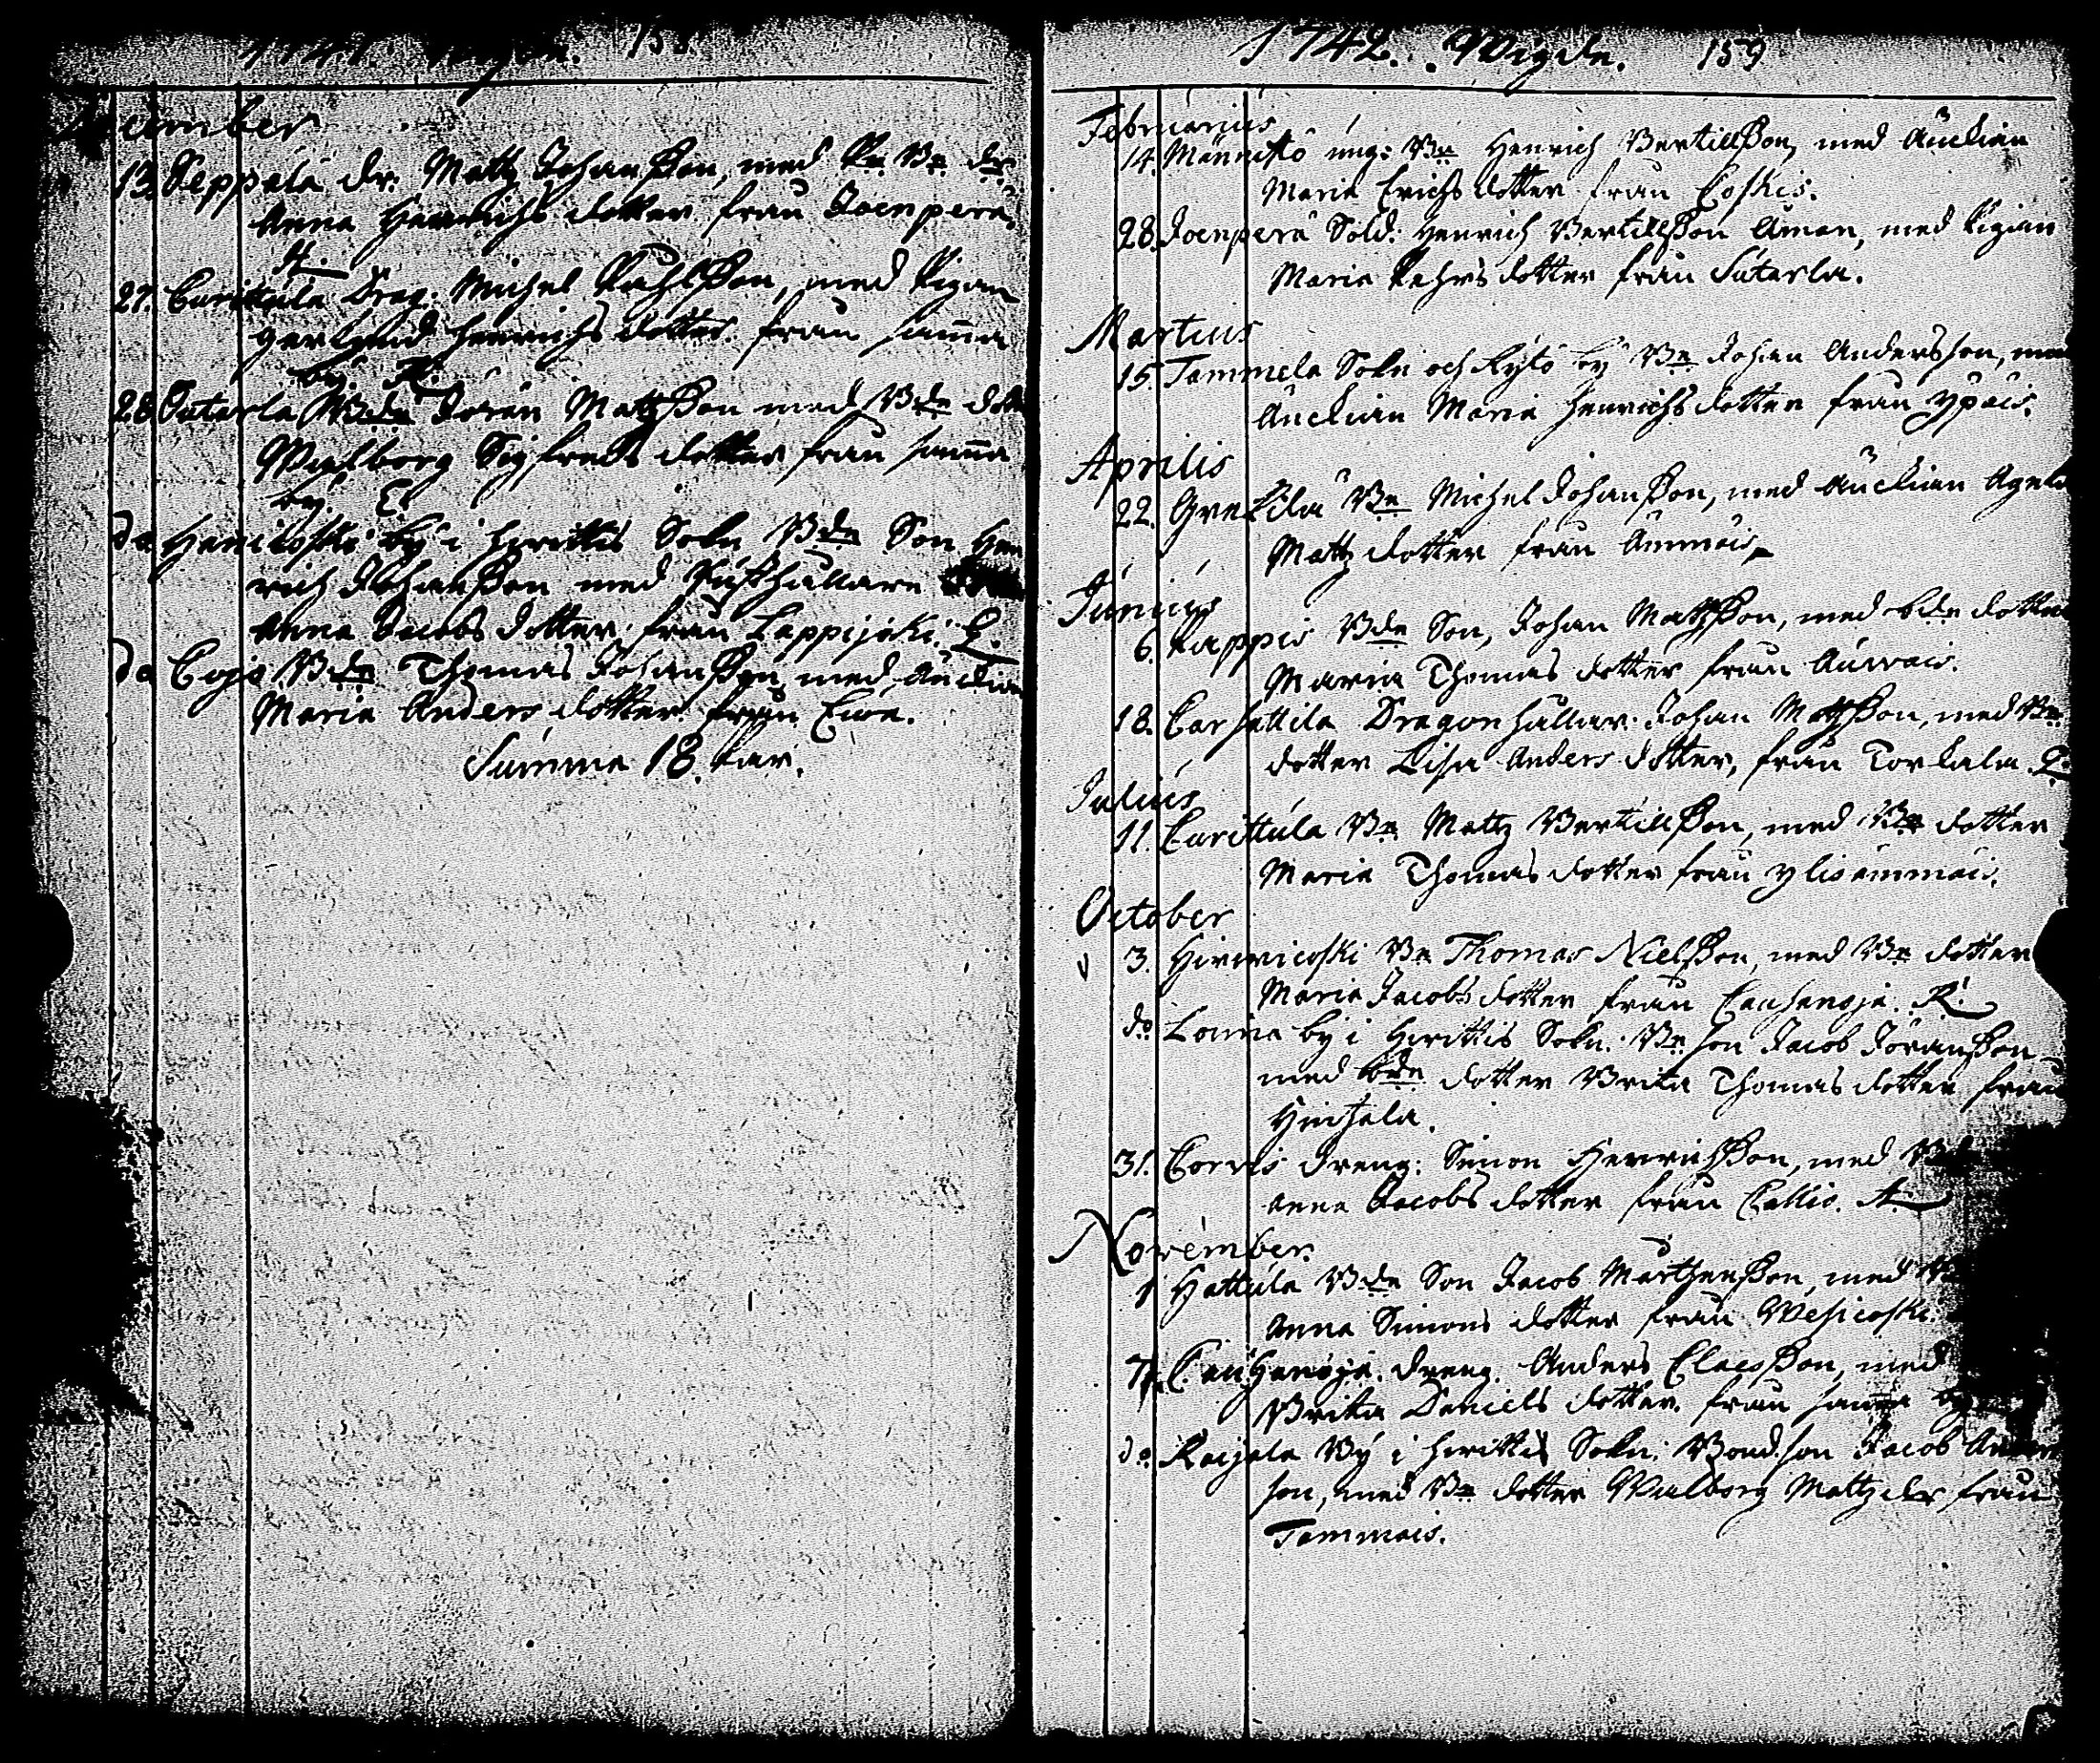 1741. Wigde. 158
December
13. Seppälä dr. Mattz Johansson, med Bde dr
Anna Henrichs dotter från Joenperä
A.
27. Carittula Drag. Michel Påhlsson, med Pigan
Gertrud Henrichs dotter från samma
by. R.
28 Satarla Bde Jören Mattzsson med Bde dotter
Walborg Sigfreds dotter från samma
by. E.
do Hanicoski by i Hvittis Sokn Bde Son Hen
rich Johansson med Rusthållare
Anna Jacobs dotter från Leppijoki. E.
do Cojo Bde Thomas Johansson, med Änckian
Maria Anders dotter från
Summa 18. Par.
1742. Wigde. 159
Februarius
14. Männistö ung: Be Henrich Bertillsson, med Änckian
Maria Erichs dotter från Coskis.
28. Joenperä Sold: Henrich Bertillsson Åman, med Pigan
Maria Pehrs dotter från Satarla.
Martius
15. Tammela Sokn och by Be Johan Andersson, med
Änckian Maria Henrichs dotter från Ypäis.
Aprilis
22. Grekilä Be Michel Johansson, med Änckian Ageta
Mattz dotter från Ämmäis
Junius
6. Kappis Bde Son, Johan Mattzson, med bde dotter
Maria Thomas dotter från Auwais.
18. Carhattila Dragonhållar. Johan Mattzson, med Be
dotter Lisa Anders dotter, från Torkala. E.
Julius
11. Carittula Be Mattz Bertillsson, med Be dotter
Maria Thomas dotter från Ylisämmäis.
October
v 3. Hirvicoski Be Thomas Nielsson, med Be dotter
Maria Jacobs dotter från Cauhanoja. R.
do Louna by i Hvittis Sokn. Be son Jacob Jöransson
med bde dotter Brita Thomas dotter från
Hinzala.
31. Corvis dreng: Simon Henrichsson, med
Anna Jacobs dotter från Callio. A.
November.
1 Hattula Bde Son Jacob Mårthensson, med
Anna Simons dotter från Wesicoski.
7. Cauhanoja. dreng. Anders Claesson, med
Brita Daniels dotter. från samma by
do Raijala By i Hvittis Sokn. Bond. son Jacob Anders
son, med Be dotter Walborg Mattz dr från
Tammais.